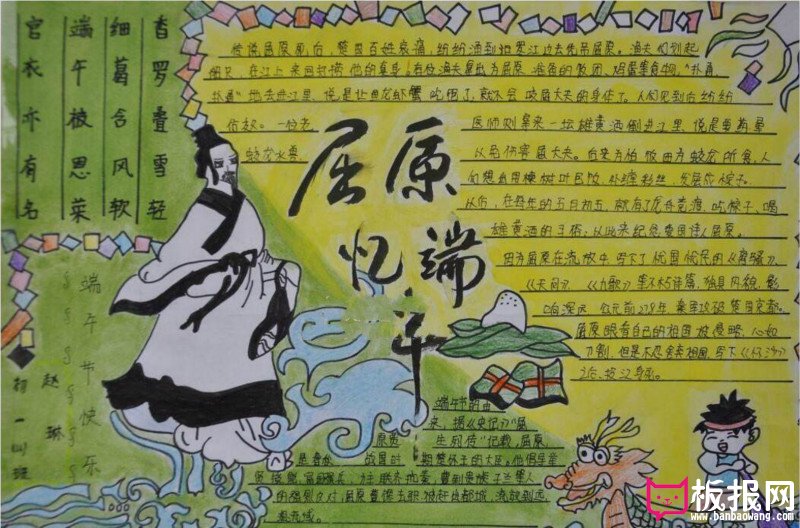 宫衣亦有名
端午被思莱
细葛含风软
香罗叠雪轻
传说屈原死后，楚国百姓哀痛，纷纷涌到汨罗江边去凭吊屈原。渔夫们划起
船只，在江上来回打捞他的真身。有位渔夫拿出为屈原准备的饭团、鸡蛋等食物，"扑通
扑通"他丢进江里，说是让鱼龙虾蟹吃饱了，就不会咬屈大夫的身体了。人们见到后纷纷
仿效。一位老
医师则拿来一坛雄黄酒倒进江里，说是要药晕
蛟龙水兽，
以免伤害屈大夫。后来为怕饭团为蛟龙所食，人
们想出用楝树叶包饭，外缠彩丝，发展成粽子。
从后，在每年的五月初五，就有了龙舟竞渡、吃粽子、喝
雄黄酒的习俗；以此来纪念爱国诗人屈原。
屈原
忆端午
屈原在流放中，写下了忧国忧民的《离骚》、
《天问》、《九歌》等不朽诗篇，独具风貌，影
响深远。公元前278年，秦军攻破楚国京都。
屈原眼看自己的祖国被侵略，心如
刀割，但是不忍舍弃祖国，写下《怀沙》
之后，投江身死。
端午节快乐
赵琳
初一(4)班
端午节的由
来，据《史记》"屈
原贾生列传"记载，屈原，
是春秋战国时期楚怀王的大臣。他倡导举
贤授能，富国强兵，力主联齐抗秦，遭到贵族子兰等人
的强烈反对，屈原遭馋去职，被赶出都城，流放到沅、
湘流域。
板报网
www.banbaowang.com